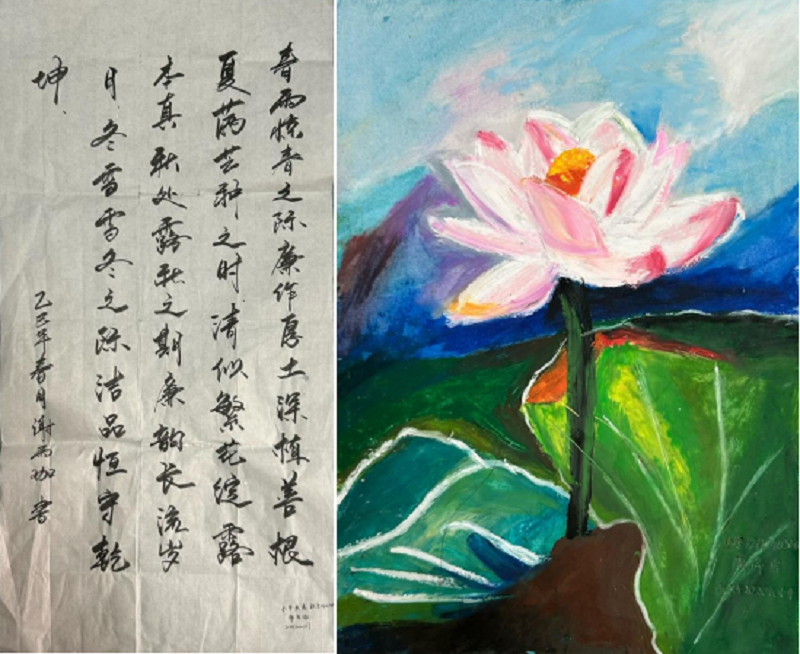 春雨惊春之际廉作厚土深植善根
夏满芒种之时清似繁花绽露
本真秋处露秋之期廉韵长流岁
月冬雪雪冬之际洁品恒守乾
坤
乙巳年春月谢雨珈书